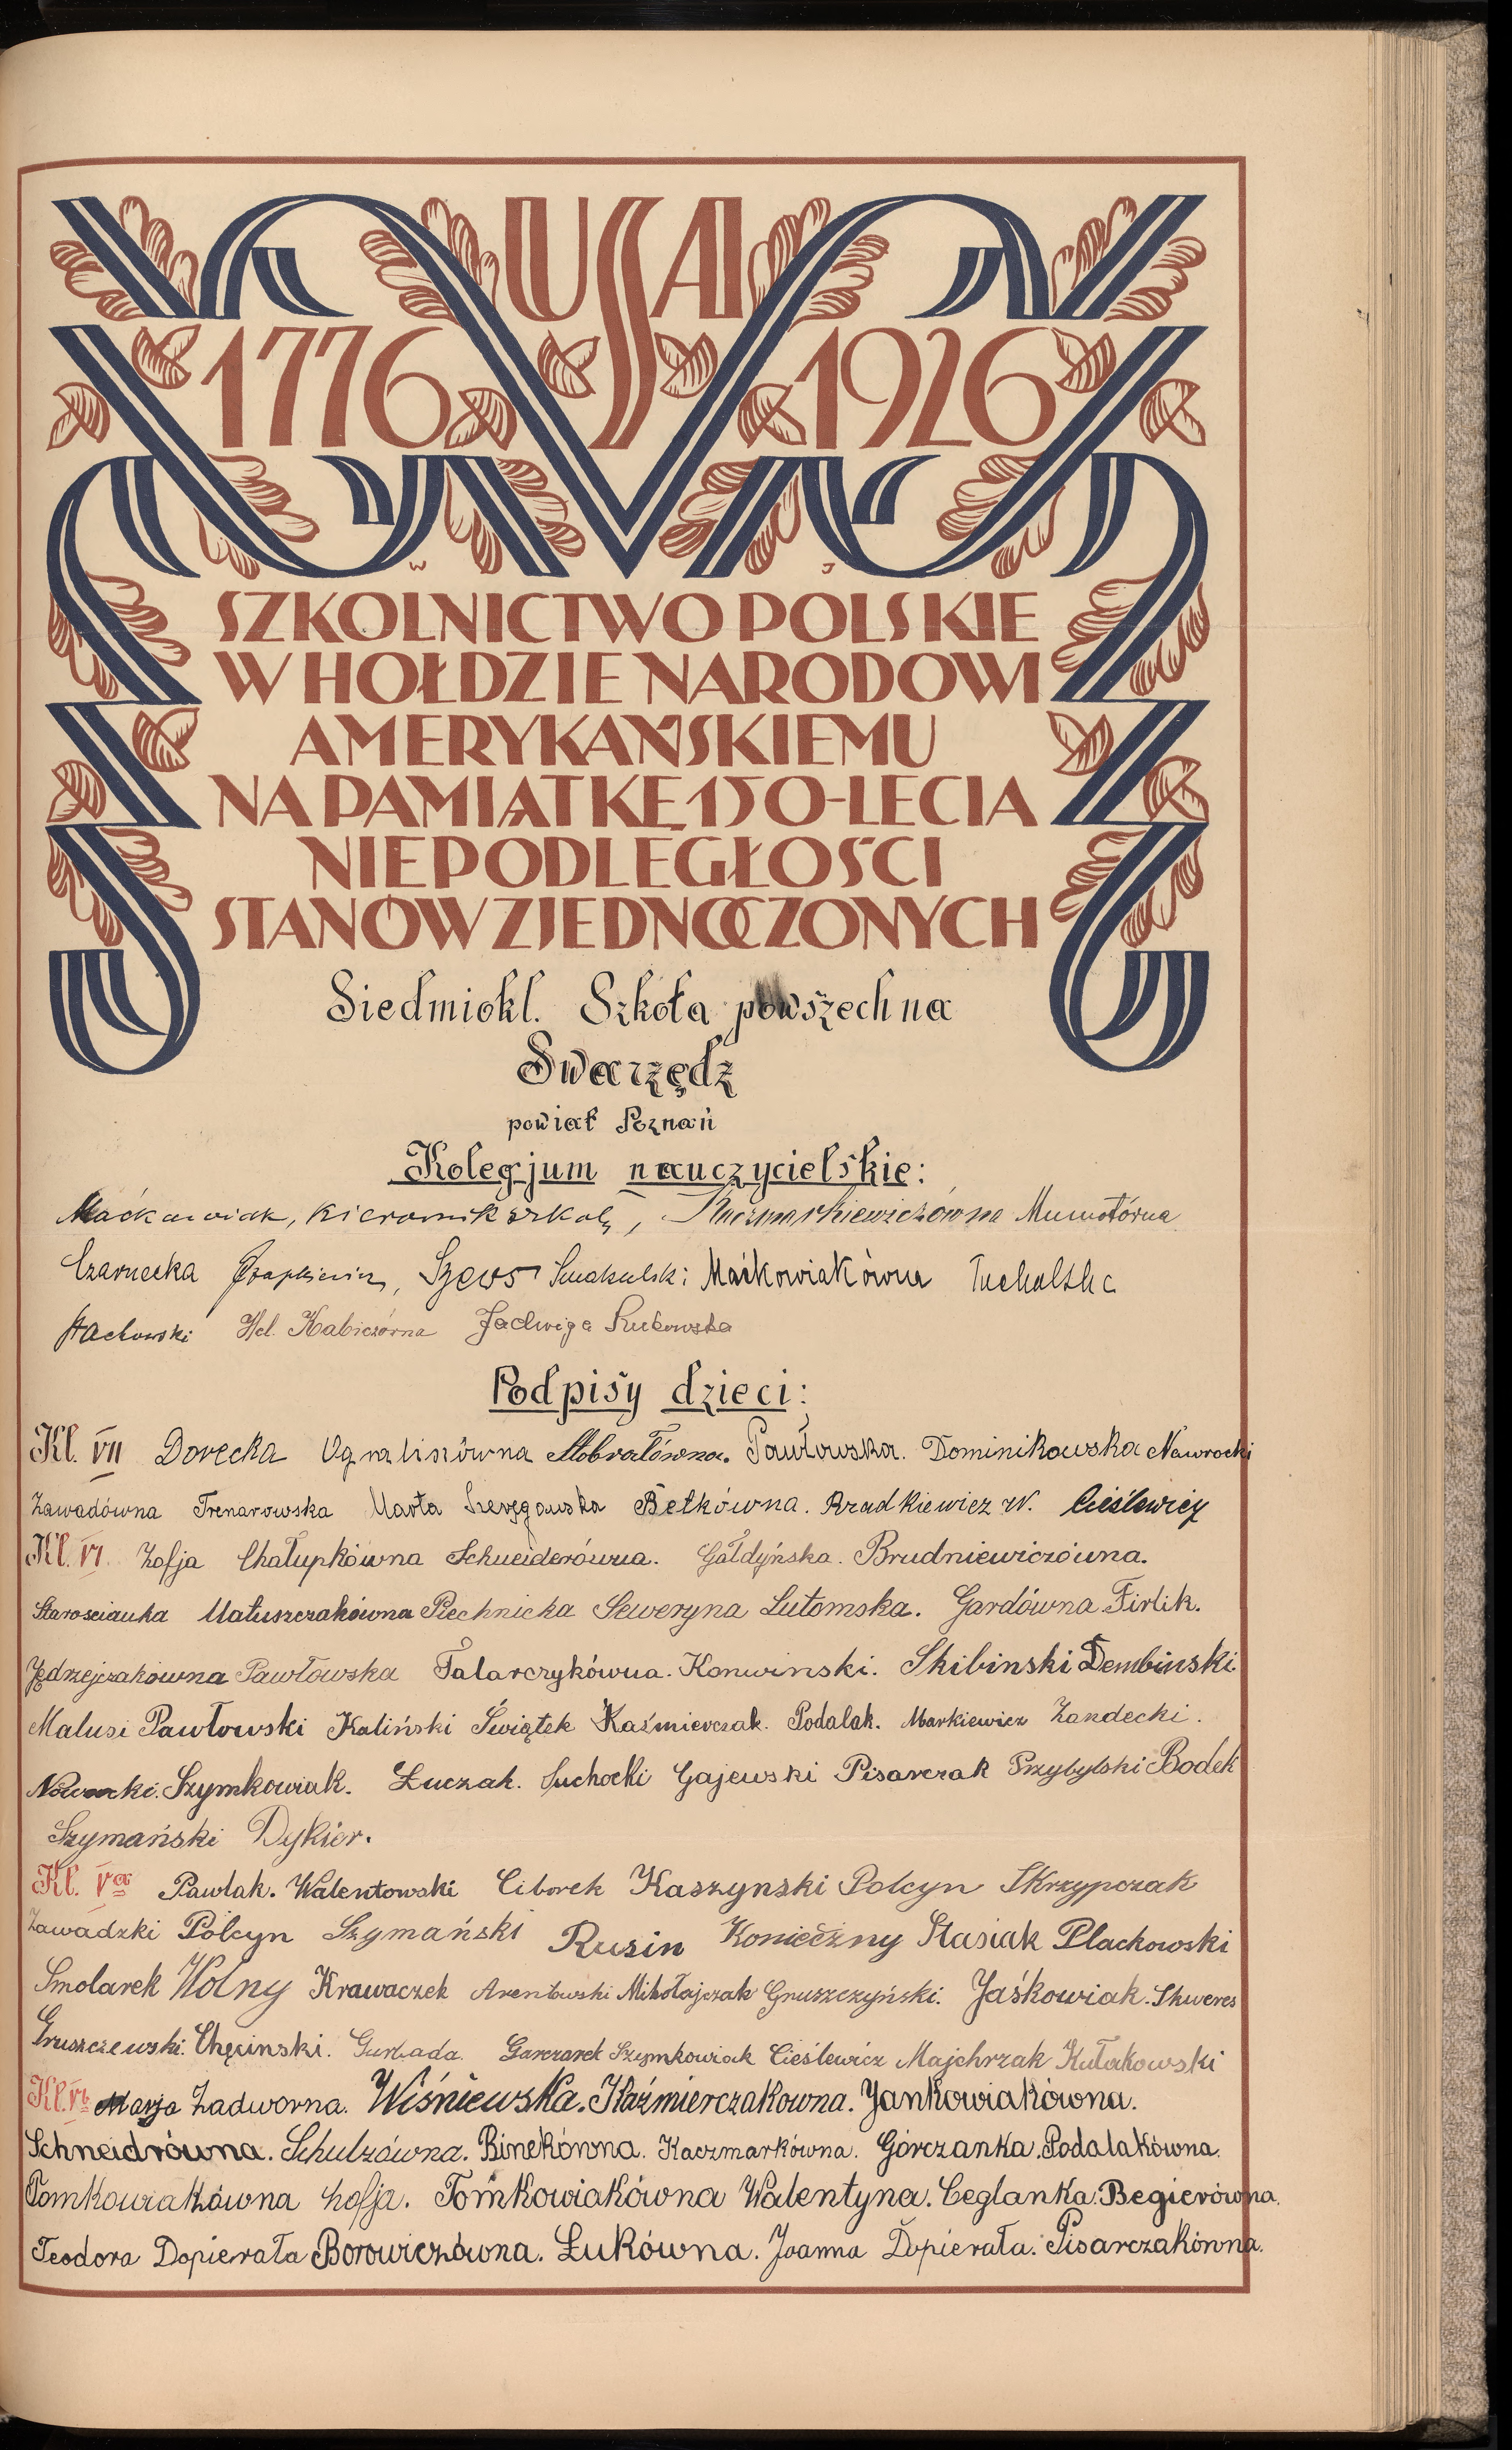 USA
1776 1926
W J
SZKOLNICTWO POLSKIE
W HOŁDZIE NARODOWI
AMERYKAŃSKIEMU
NA PAMIĄTKĘ 150-LECIA
NIEPODLEGŁOŚCI
STANÓW ZJEDNOCZONYCH
Siedmiokl. Szkoła powszechna
Swarzędz
powiat Poznań
Kolegjum nauczycielskie:
Maćkowiak, kierownik szkoły, Kaczmarkiewiczówna
Czarnecka Szews Smakulski Maćkowiakówna Tucholska
Stachowski Hel. Kabiczówna Jadwiga
Podpisy dzieci:
Kl. VII Dorecka Pawłowska. Dominikowska Nawrocki
Zawadówna Trenarowska Marta Betkówna. Bradkiewicz W. Cieślewicz
Kl. VI. Zofja Chałupkówna Schneiderówna. Gałdyńska. Brudniewiczówna.
Starościanka Matuszczakówna Piechnicka Seweryna Lutomska. Gardówna Firlik.
Jędrzejczakówna Pawłowska Talarczykówna. Konwinski. Skibinski Dembinski
Malusi Pawłowski Kaliński Świątek Kaźmierczak. Podalak. Markiewicz Zandecki.
Nowacki. Szymkowiak. Łuczak. Suchocki Gajewski Pisarczak Przybylski Bodek
Szymański Dykier.
Kl. Va Pawlak. Walentowski Ciborek Kaszynski Polcyn Skrzypczak
Zawadzki Polcyn Szymański Rusin Konieczny Stasiak Plackowski
Smolarek Wolny Krawaczek Arentowski Mikołajczak Gruszczyński. Jaśkowiak. Skweres
Gruszczewski. Chęcinski. Garczarek Szymkowiak Cieślewicz Majchrzak Kułakowski
Kl. Vb Marja Zadworna. Wiśniewska. Kaźmierczakowna. Jankowiakówna.
Schneidrówna. Schulzówna. Binekówna. Kaczmarkówna. Górczanka. Podalakówna.
Tomkowiakówna Zofja. Tomkowiakówna Walentyna. Ceglanka. Begierówna.
Teodora Dopierała Borowiczówna. Łukówna. Joanna Dopierała. Pisarczakówna.